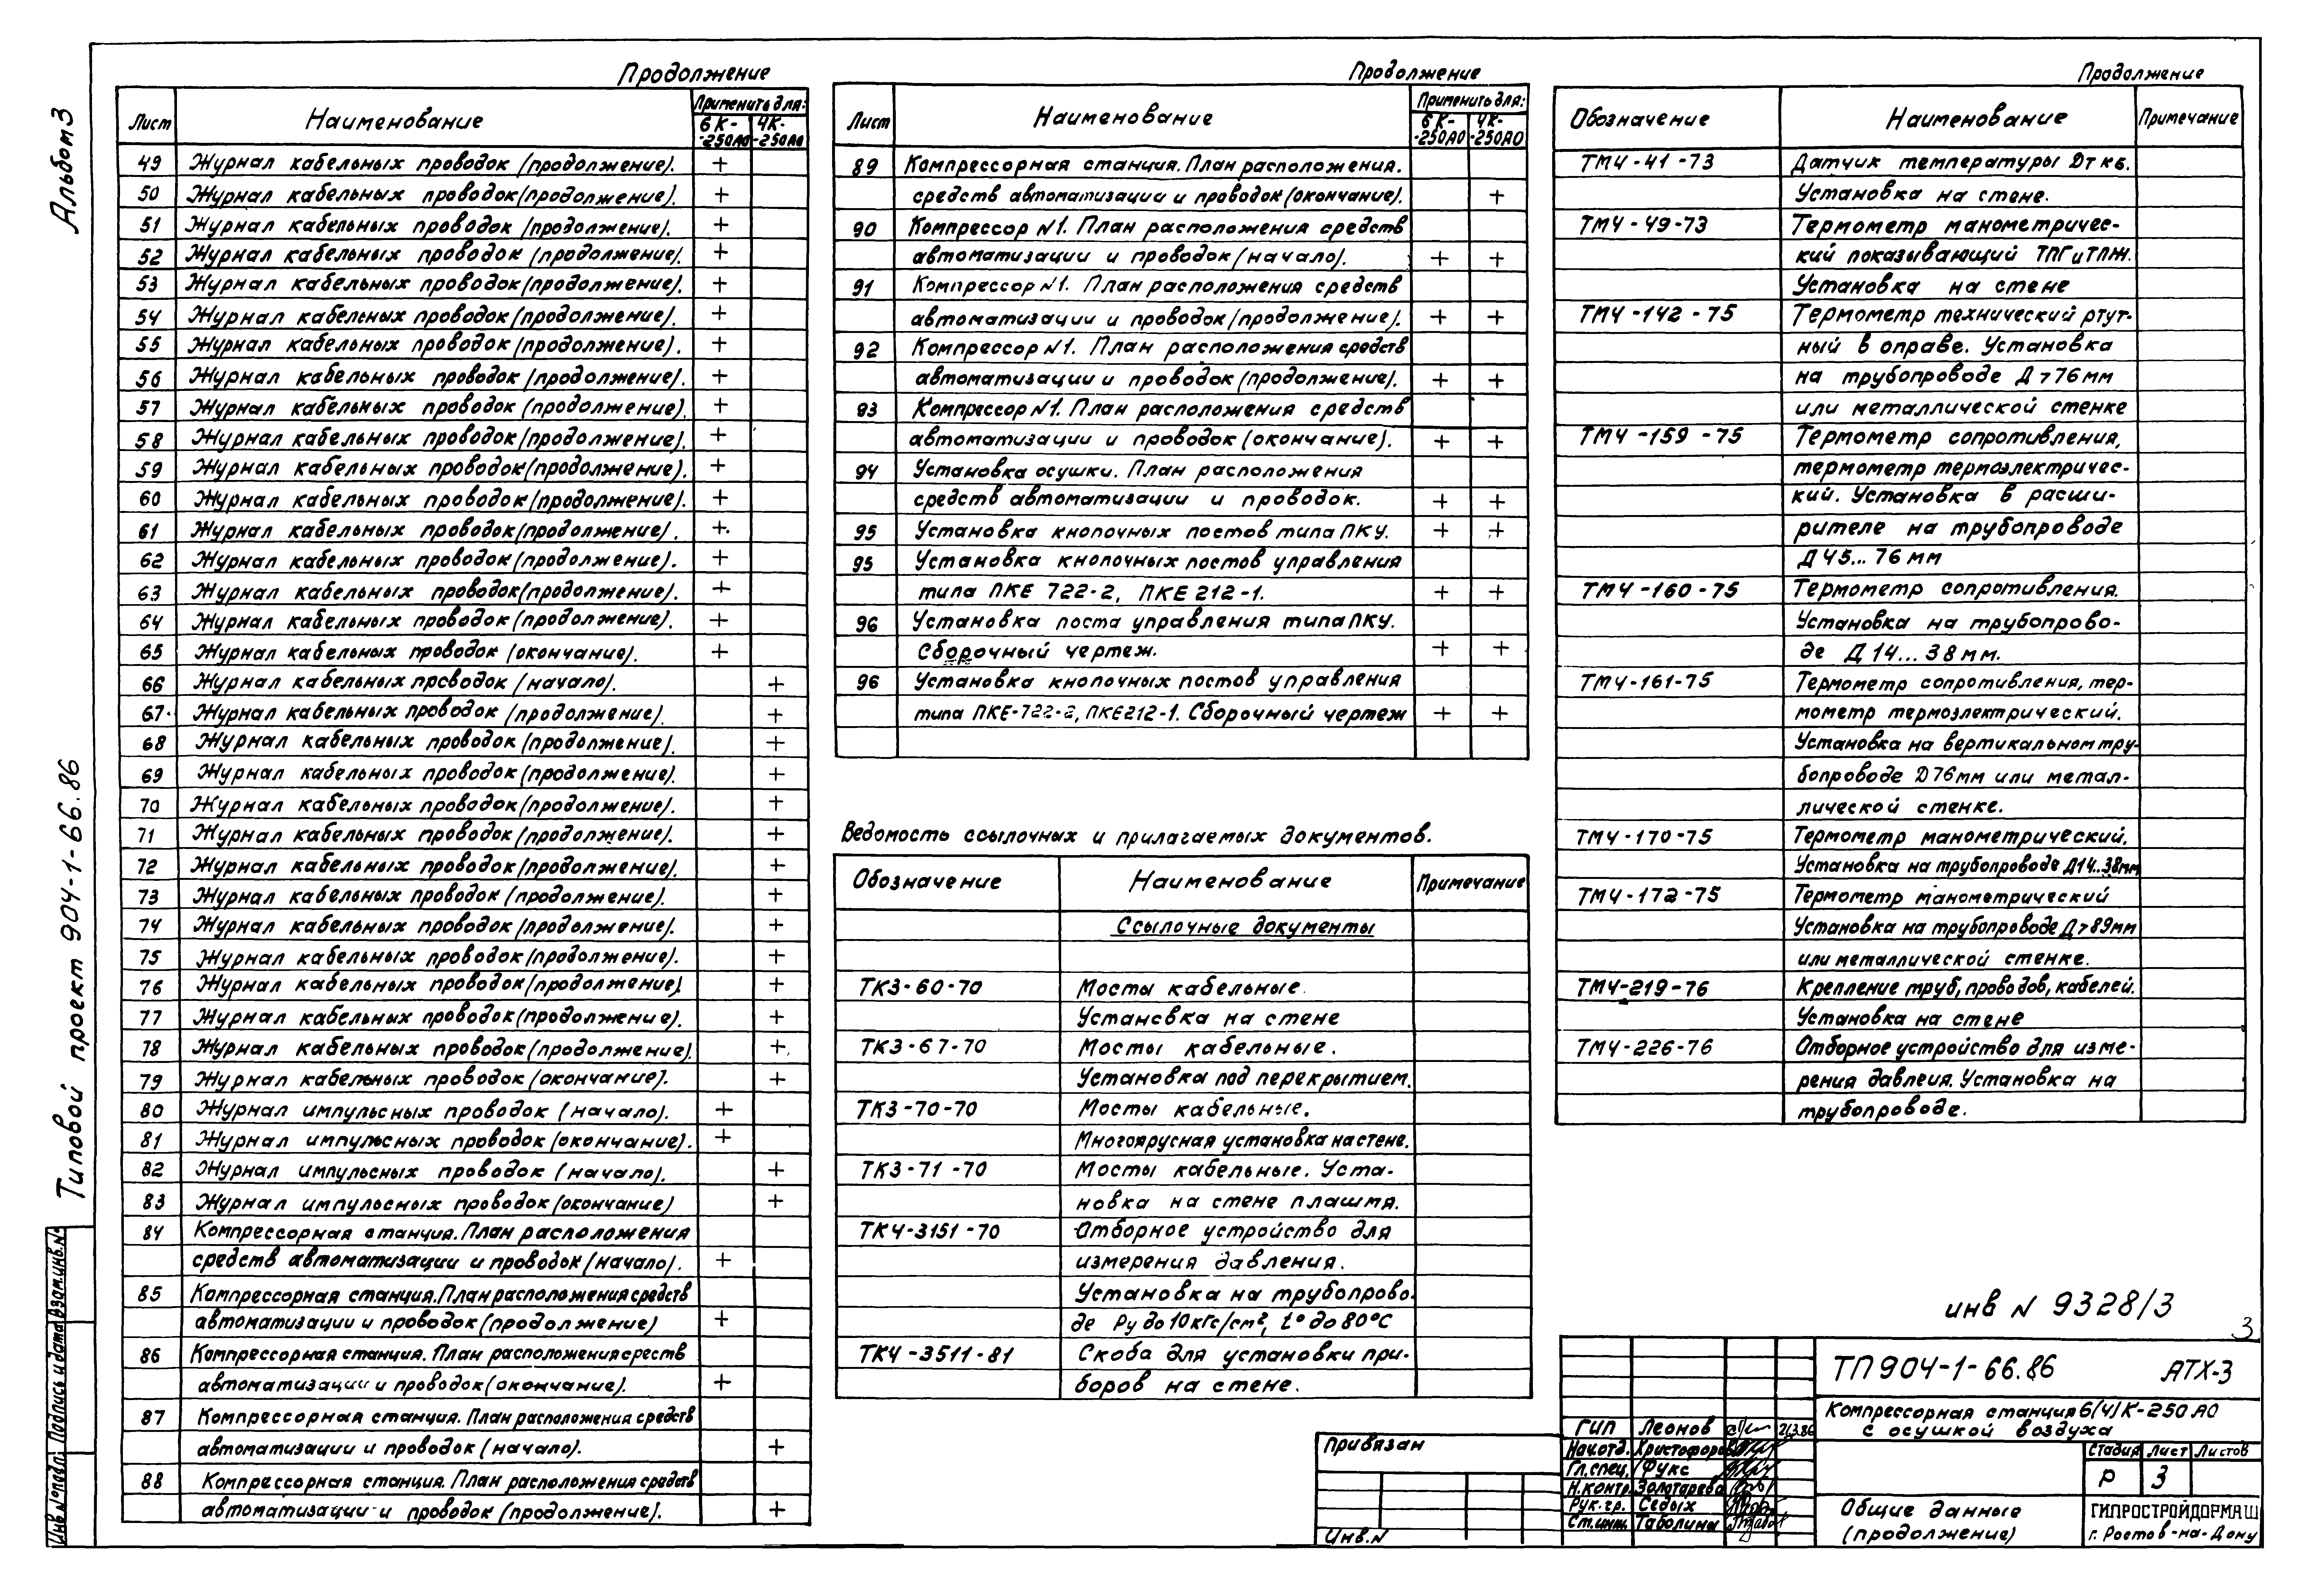 Альбом 3
Типовой проект 904-1-66.86
Инв.№подл. Подпись и дата Взам.инв.№
Продолжение
Лист Наименование Применить для:
6К- 4К-
-250А0 -250А0
49 Журнал кабельных проводок (продолжение). +
50 Журнал кабельных проводок (продолжение). +
51 Журнал кабельных проводок (продолжение). +
52 Журнал кабельных проводок (продолжение). +
53 Журнал кабельных проводок (продолжение). +
54 Журнал кабельных проводок (продолжение). +
55 Журнал кабельных проводок (продолжение). +
56 Журнал кабельных проводок (продолжение). +
57 Журнал кабельных проводок (продолжение). +
58 Журнал кабельных проводок (продолжение). +
59 Журнал кабельных проводок (продолжение). +
60 Журнал кабельных проводок (продолжение). +
61 Журнал кабельных проводок (продолжение). +
62 Журнал кабельных проводок (продолжение). +
63 Журнал кабельных проводок (продолжение). +
64 Журнал кабельных проводок (продолжение). +
65 Журнал кабельных проводок (окончание). +
66 Журнал кабельных проводок (начало). +
67 Журнал кабельных проводок (продолжение). +
68 Журнал кабельных проводок (продолжение). +
69 Журнал кабельных проводок (продолжение). +
70 Журнал кабельных проводок (продолжение). +
71 Журнал кабельных проводок (продолжение). +
72 Журнал кабельных проводок (продолжение). +
73 Журнал кабельных проводок (продолжение). +
74 Журнал кабельных проводок (продолжение). +
75 Журнал кабельных проводок (продолжение). +
76 Журнал кабельных проводок (продолжение). +
77 Журнал кабельных проводок (продолжение). +
78 Журнал кабельных проводок (продолжение). +
79 Журнал кабельных проводок (окончание). +
80 Журнал импульсных проводок (начало). +
81 Журнал импульсных проводок (окончание). +
82 Журнал импульсных проводок (начало). +
83 Журнал импульсных проводок (окончание) +
84 Компрессорная станция. План расположения
средств автоматизации и проводок (начало). +
85 Компрессорная станция. План расположения средств
автоматизации и проводок (продолжение) +
86 Компрессорная станция. План расположения среств
автоматизации и проводок (окончание). +
87 Компрессорная станция. План расположения средств
автоматизации и проводок (начало). +
88 Компрессорная станция. План расположения средств
автоматизации и проводок (продолжение). +
Продолжение
Лист Наименование Применить для:
6К- 4К-
-250А0 -250А0
89 Компрессорная станция. План расположения.
средств автоматизации и проводок (окончание). +
90 Компрессор N1. План расположения средств
автоматизации и проводок (начало). + +
91 Компрессор N1. План расположения средств
автоматизации и проводок (продолжение). + +
92 Компрессор N1. План расположения средств
автоматизации и проводок (продолжение). + +
93 Компрессор N1. План расположения средств
автоматизации и проводок (окончание). + +
94 Установка осушки. План расположения
средств автоматизации и проводок. + +
95 Установка кнопочных постов типа ПКУ. + +
95 Установка кнопочных постов управления
типа ПКЕ 722-2, ПКЕ 212-1. + +
96 Установка поста управления типа ПКУ.
Сборочный чертеж. + +
96 Установка кнопочных постов управления
типа ПКЕ-722-2, ПКЕ212-1. Сборочный чертеж + +
Ведомость ссылочных и прилагаемых документов.
Обозначение Наименование Примечание
Ссылочные документы
ТК3-60-70 Мосты кабельные.
Установка на стене
ТК3-67-70 Мосты кабельные.
Установка под перекрытием.
ТК3-70-70 Мосты кабельные.
Многоярусная установка на стене.
ТК3-71-70 Мосты кабельные. Уста-
новка на стене плашмя.
ТК4-3151-70 Отборное устройство для
измерения давления.
Установка на трубопрово-
де Ру до 10 кгс/см², t° до 80°С
ТК4-3511-81 Скоба для установки при-
боров на стене.
Продолжение
Обозначение Наименование Примечание
ТМ4-41-73 Датчик температуры Дт кб.
Установка на стене.
ТМ4-49-73 Термометр манометричес-
кий показывающий ТПГ и ТПЖ.
Установка на стене
ТМ4-142-75 Термометр технический ртут-
ный в оправе. Установка
на трубопроводе Д>76 мм
или металлической стенке
ТМ4-159-75 Термометр сопротивления,
термометр термоэлектричес-
кий. Установка в расши-
рителе на трубопроводе
Д 45...76 мм
ТМ4-160-75 Термометр сопротивления.
Установка на трубопрово-
де Д 14...38 мм.
ТМ4-161-75 Термометр сопротивления, тер-
мометр термоэлектрический.
Установка на вертикальном тру-
бопроводе Д76 мм или метал-
лической стенке.
ТМ4-170-75 Термометр манометрический.
Установка на трубопроводе Д14..38мм
ТМ4-172-75 Термометр манометрический
Установка на трубопроводе Д>89мм
или металлической стенке.
ТМ4-219-76 Крепление труб, проводов, кабелей.
Установка на стене
ТМ4-226-76 Отборное устройство для изме-
рения давлеия. Установка на
трубопроводе.
инв N 9328/3
3
Привязан
Инв.N
ГИП Леонов 21.3.86
Нач.отд. Христофоров
Гл.спец. Фукс
Н.контр. Золотарева
Рук.гр. Седых
Ст.инж. Таболина
ТП 904-1-66.86 АТХ-3
Компрессорная станция 6(4)К-250 А0
с осушкой воздуха
Стадия Лист Листов
Р 3
Общие данные
(продолжение)
ГИПРОСТРОЙДОРМАШ
г. Ростов-на-Дону